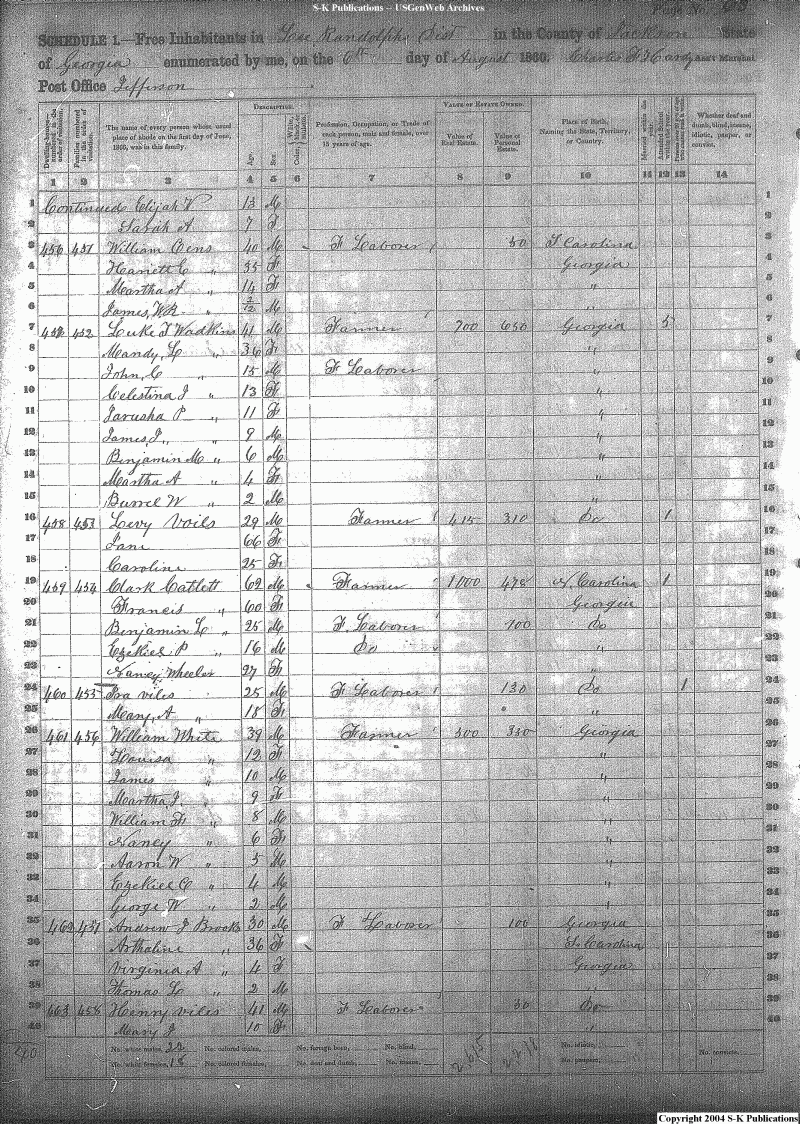 S-K Publications – USGenWeb Archives
Page No.
SCHEDULE 1.—Free Inhabitants in Randolphs Dist in the County of Jackson State
of Georgia enumerated by me, on the 6th day of August 1860. Charles Hardy Ass't Marshal
Post Office Jefferson
DESCRIPTION. VALUE OF ESTATE OWNED.
Dwelling-houses numbered in the order of visitation. Families numbered in the order of visitation. The name of every person whose usual place of abode on the first day of June, 1860, was in this family. Age. Sex. Color Profession, Occupation, or Trade of each person, male and female, over 15 years of age. Value of Real Estate. Value of Personal Estate. Place of Birth, Naming the State, Territory, or Country. Married within the year. Whether deaf and dumb, blind, insane, idiotic, pauper, or convict.
1 2 3 4 5 6 7 8 9 10 11 12 13 14
1 Continued Elijah W 13 M 1
2 Sarah A 7 F 2
3 456 451 William 40 M F Laborer 50 S Carolina 3
4 Harriett E " 35 F Georgia 4
5 Martha A " 14 F " 5
6 James, W R " M " 6
7 452 Luke T Wadkins 41 M Farmer 700 650 Georgia 5 7
8 Mandy, L " 36 F " 8
9 John, C " 15 M F Laborer " 9
10 Celestina J " 13 F " 10
11 Jarusha P " 11 F " 11
12 James, J " 9 M " 12
13 Benjamin M " 6 M " 13
14 Martha A " 4 F " 14
15 Burrel W " 2 M " 15
16 458 453 Levy Voils 29 M Farmer 415 310 Do 1 16
17 Jane 66 F 17
18 Caroline 25 F 18
19 459 454 Clark Catlett 62 M Farmer 1000 475 N. Carolina 1 19
20 Francis " 60 F Georgia 20
21 Benjamin L " 25 M F. Laborer 100 Do 21
22 Ezekiel P " 16 M Do " 22
23 Nancy Wheeler 27 F " 23
24 460 455 Ira viles 25 M F Laborer 130 Do 1 24
25 Mary, A " 18 F " 25
26 461 456 William White 39 M Farmer 300 330 Georgia 26
27 Louisa " 12 F " 27
28 James " 10 M " 28
29 Martha J. " 9 F " 29
30 William F " 8 M " 30
31 Nancy " 6 F " 31
32 Aaron W " 5 M " 32
33 Ezekiel C " 4 M " 33
34 George W " 2 M " 34
35 462 457 Andrew J Brooks 30 M F Laborer 100 Georgia 35
36 Arthaline " 36 F S. Carolina 36
37 Virginia A " 4 F Georgia 37
38 Thomas L " 2 M " 38
39 463 458 Henry viles 41 M F Laborer 30 Do 39
40 Mary J 10 F " 40
No. white males, 22 No. colored males, No. foreign born, No. blind, No. idiotic, No. convicts,
No. white females, 18 No. colored females, No. deaf and dumb, No. insane, No. paupers,
Copyright 2004 S-K Publications